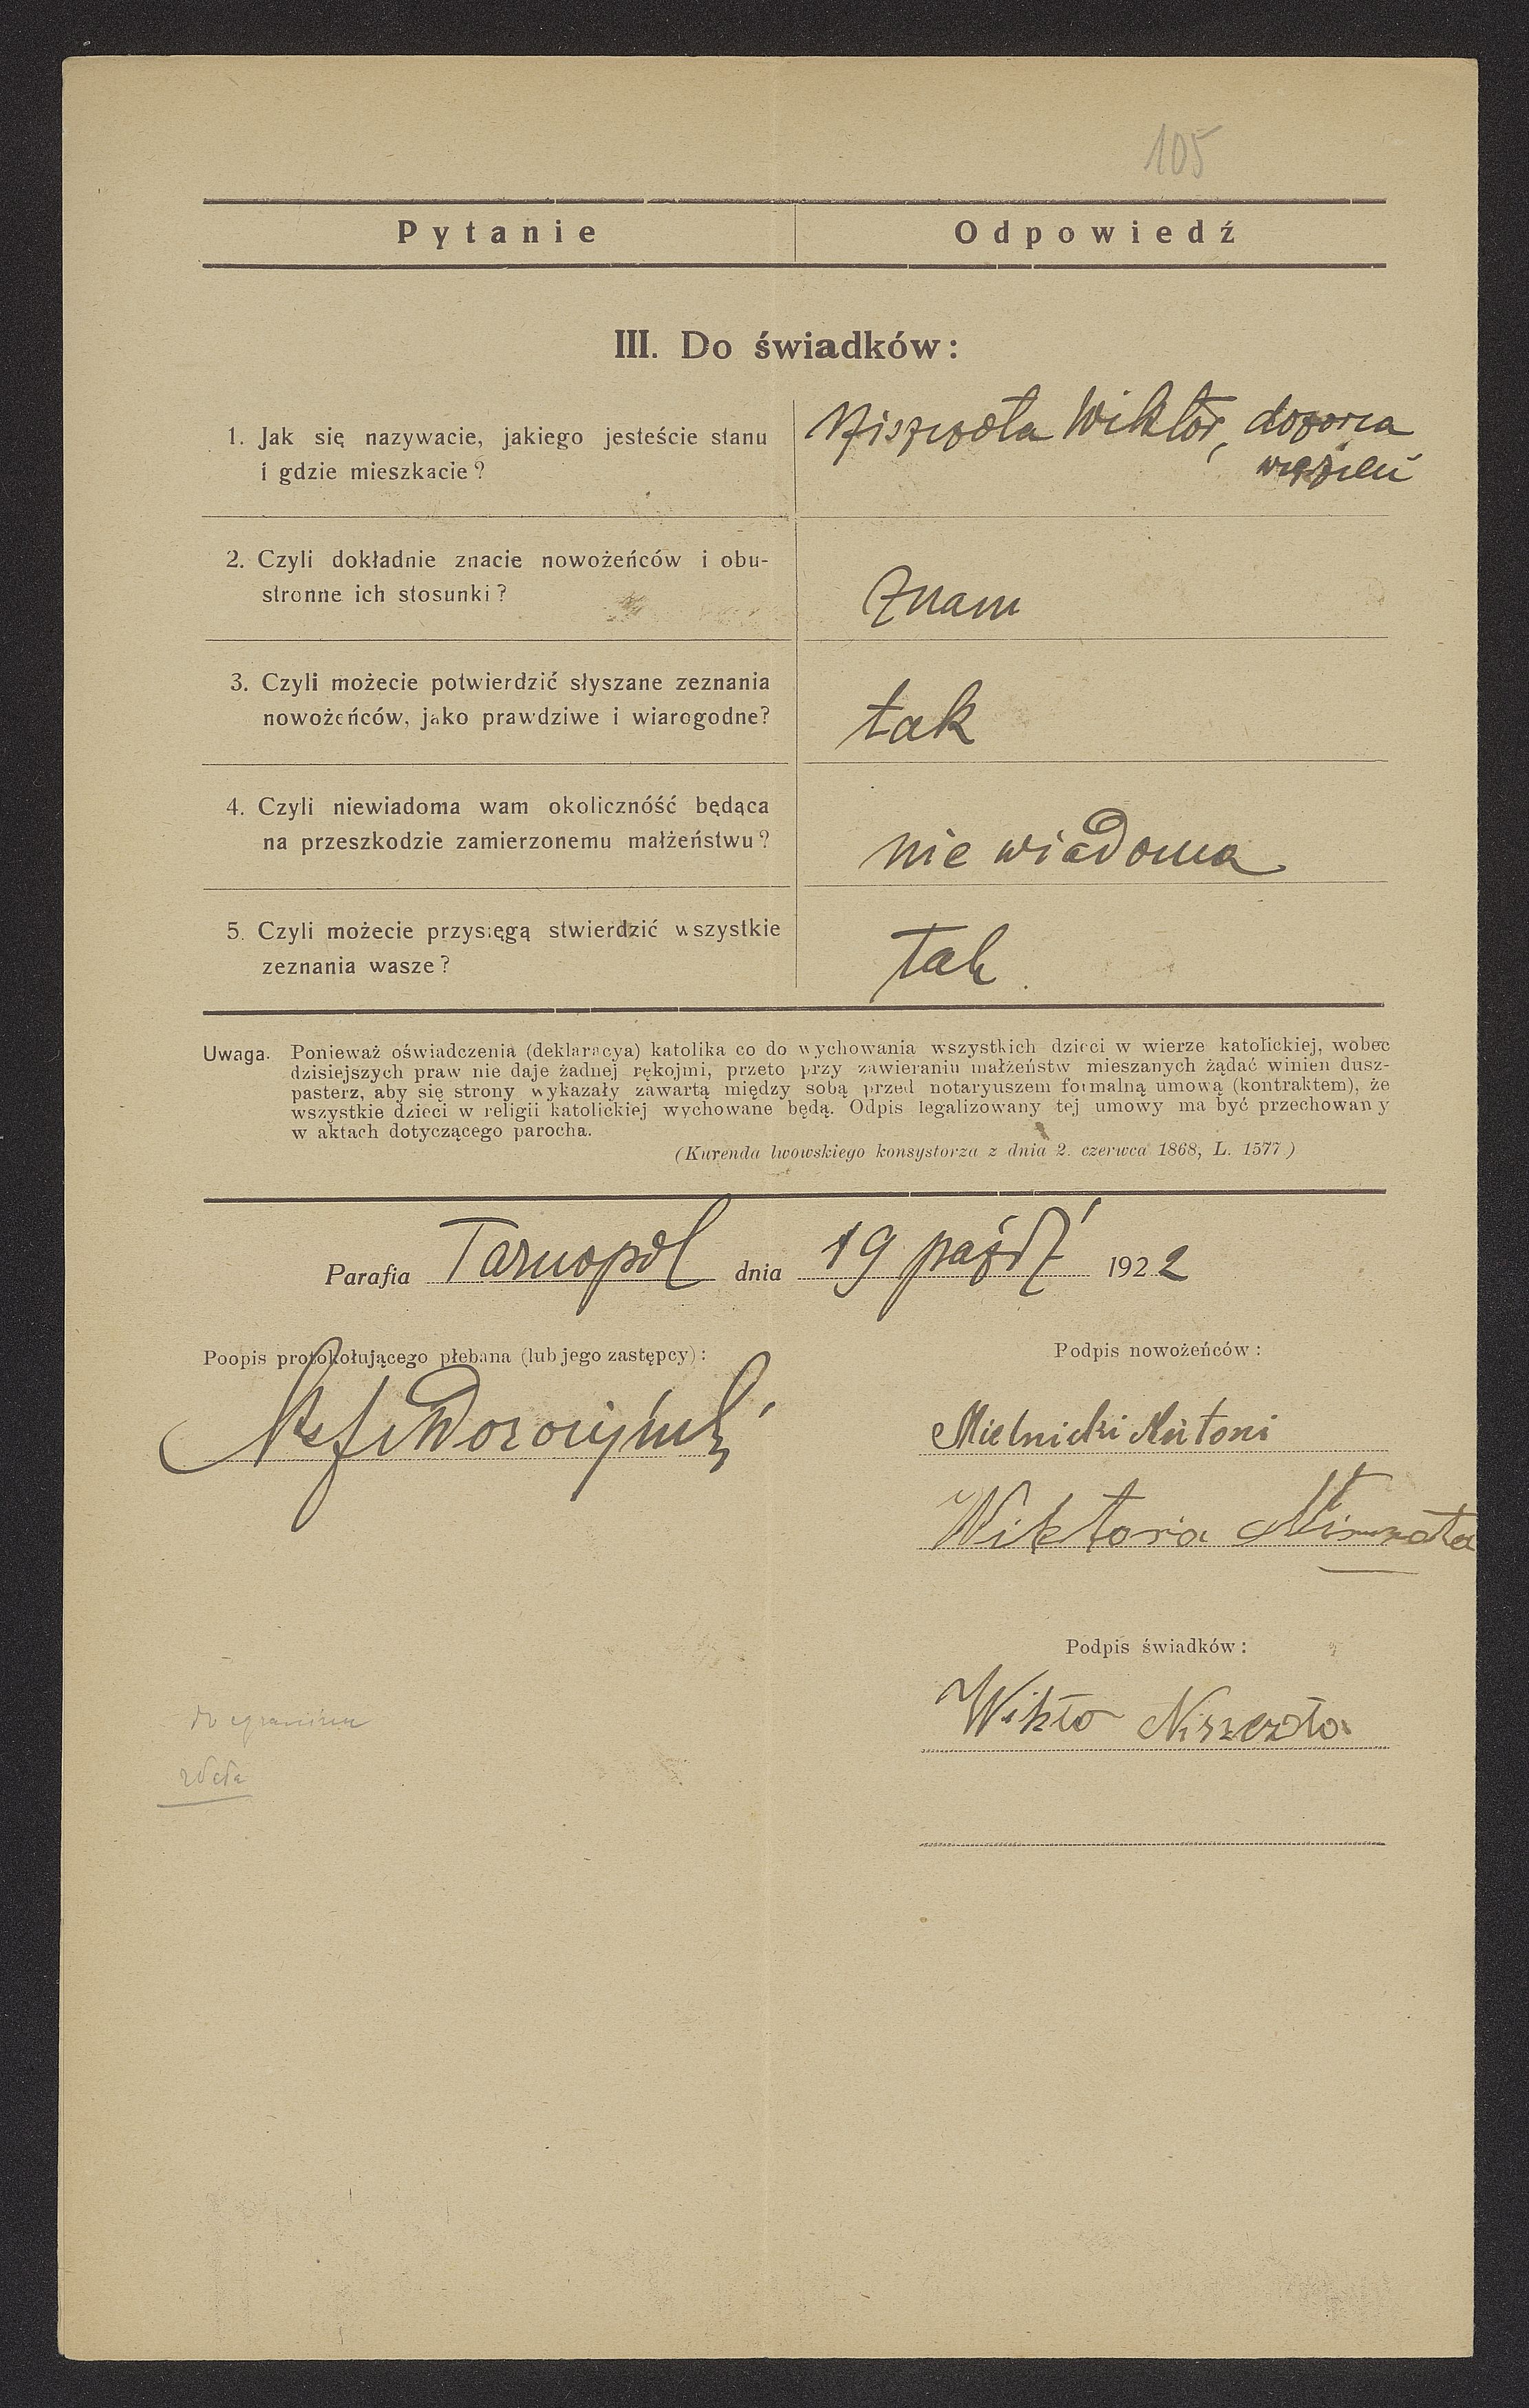 105
Pytanie Odpowiedź
III. Do świadków:
1. Jak się nazywacie, jakiego jesteście stanu
i gdzie mieszkacie?
Niszczota Wiktor, dozorca
więzień
2. Czyli dokładnie znacie nowożeńców i obu-
stronne ich stosunki?
znam
3. Czyli możecie potwierdzić słyszane zeznania
nowożeńców, jako prawdziwe i wiarogodne?
tak
4. Czyli niewiadoma wam okoliczńóść będąca
na przeszkodzie zamierzonemu małżeństwu?
nie wiadoma
5. Czyli możecie przysięgą stwierdzić wszystkie
zeznania wasze?
tak
Uwaga. Ponieważ oświadczenia (deklaracya) katolika co do wychowania wszystkich dzieci w wierze katolickiej, wobec
dzisiejszych praw nie daje żadnej rękojmi, przeto przy zawieraniu małżeństw mieszanych żądać winien dusz-
pasterz, aby się strony wykazały zawartą między sobą przed notaryuszem formalną umową (kontraktem), że
wszystkie dzieci w religii katolickiej wychowane będą. Odpis legalizowany tej umowy ma być przechowany
w aktach dotyczącego parocha.
(Kurenda lwowskiego konsystorza z dnia 2. czerwca 1868, L. 1577)
Parafia Tarnopol dnia 19 paźdź 1922
Poopis protokołującego plebana (lub jego zastępcy):
Podpis nowożeńców:
Mielnicki Antoni
Wiktoria
Podpis świadków:
Wikto Niszczota